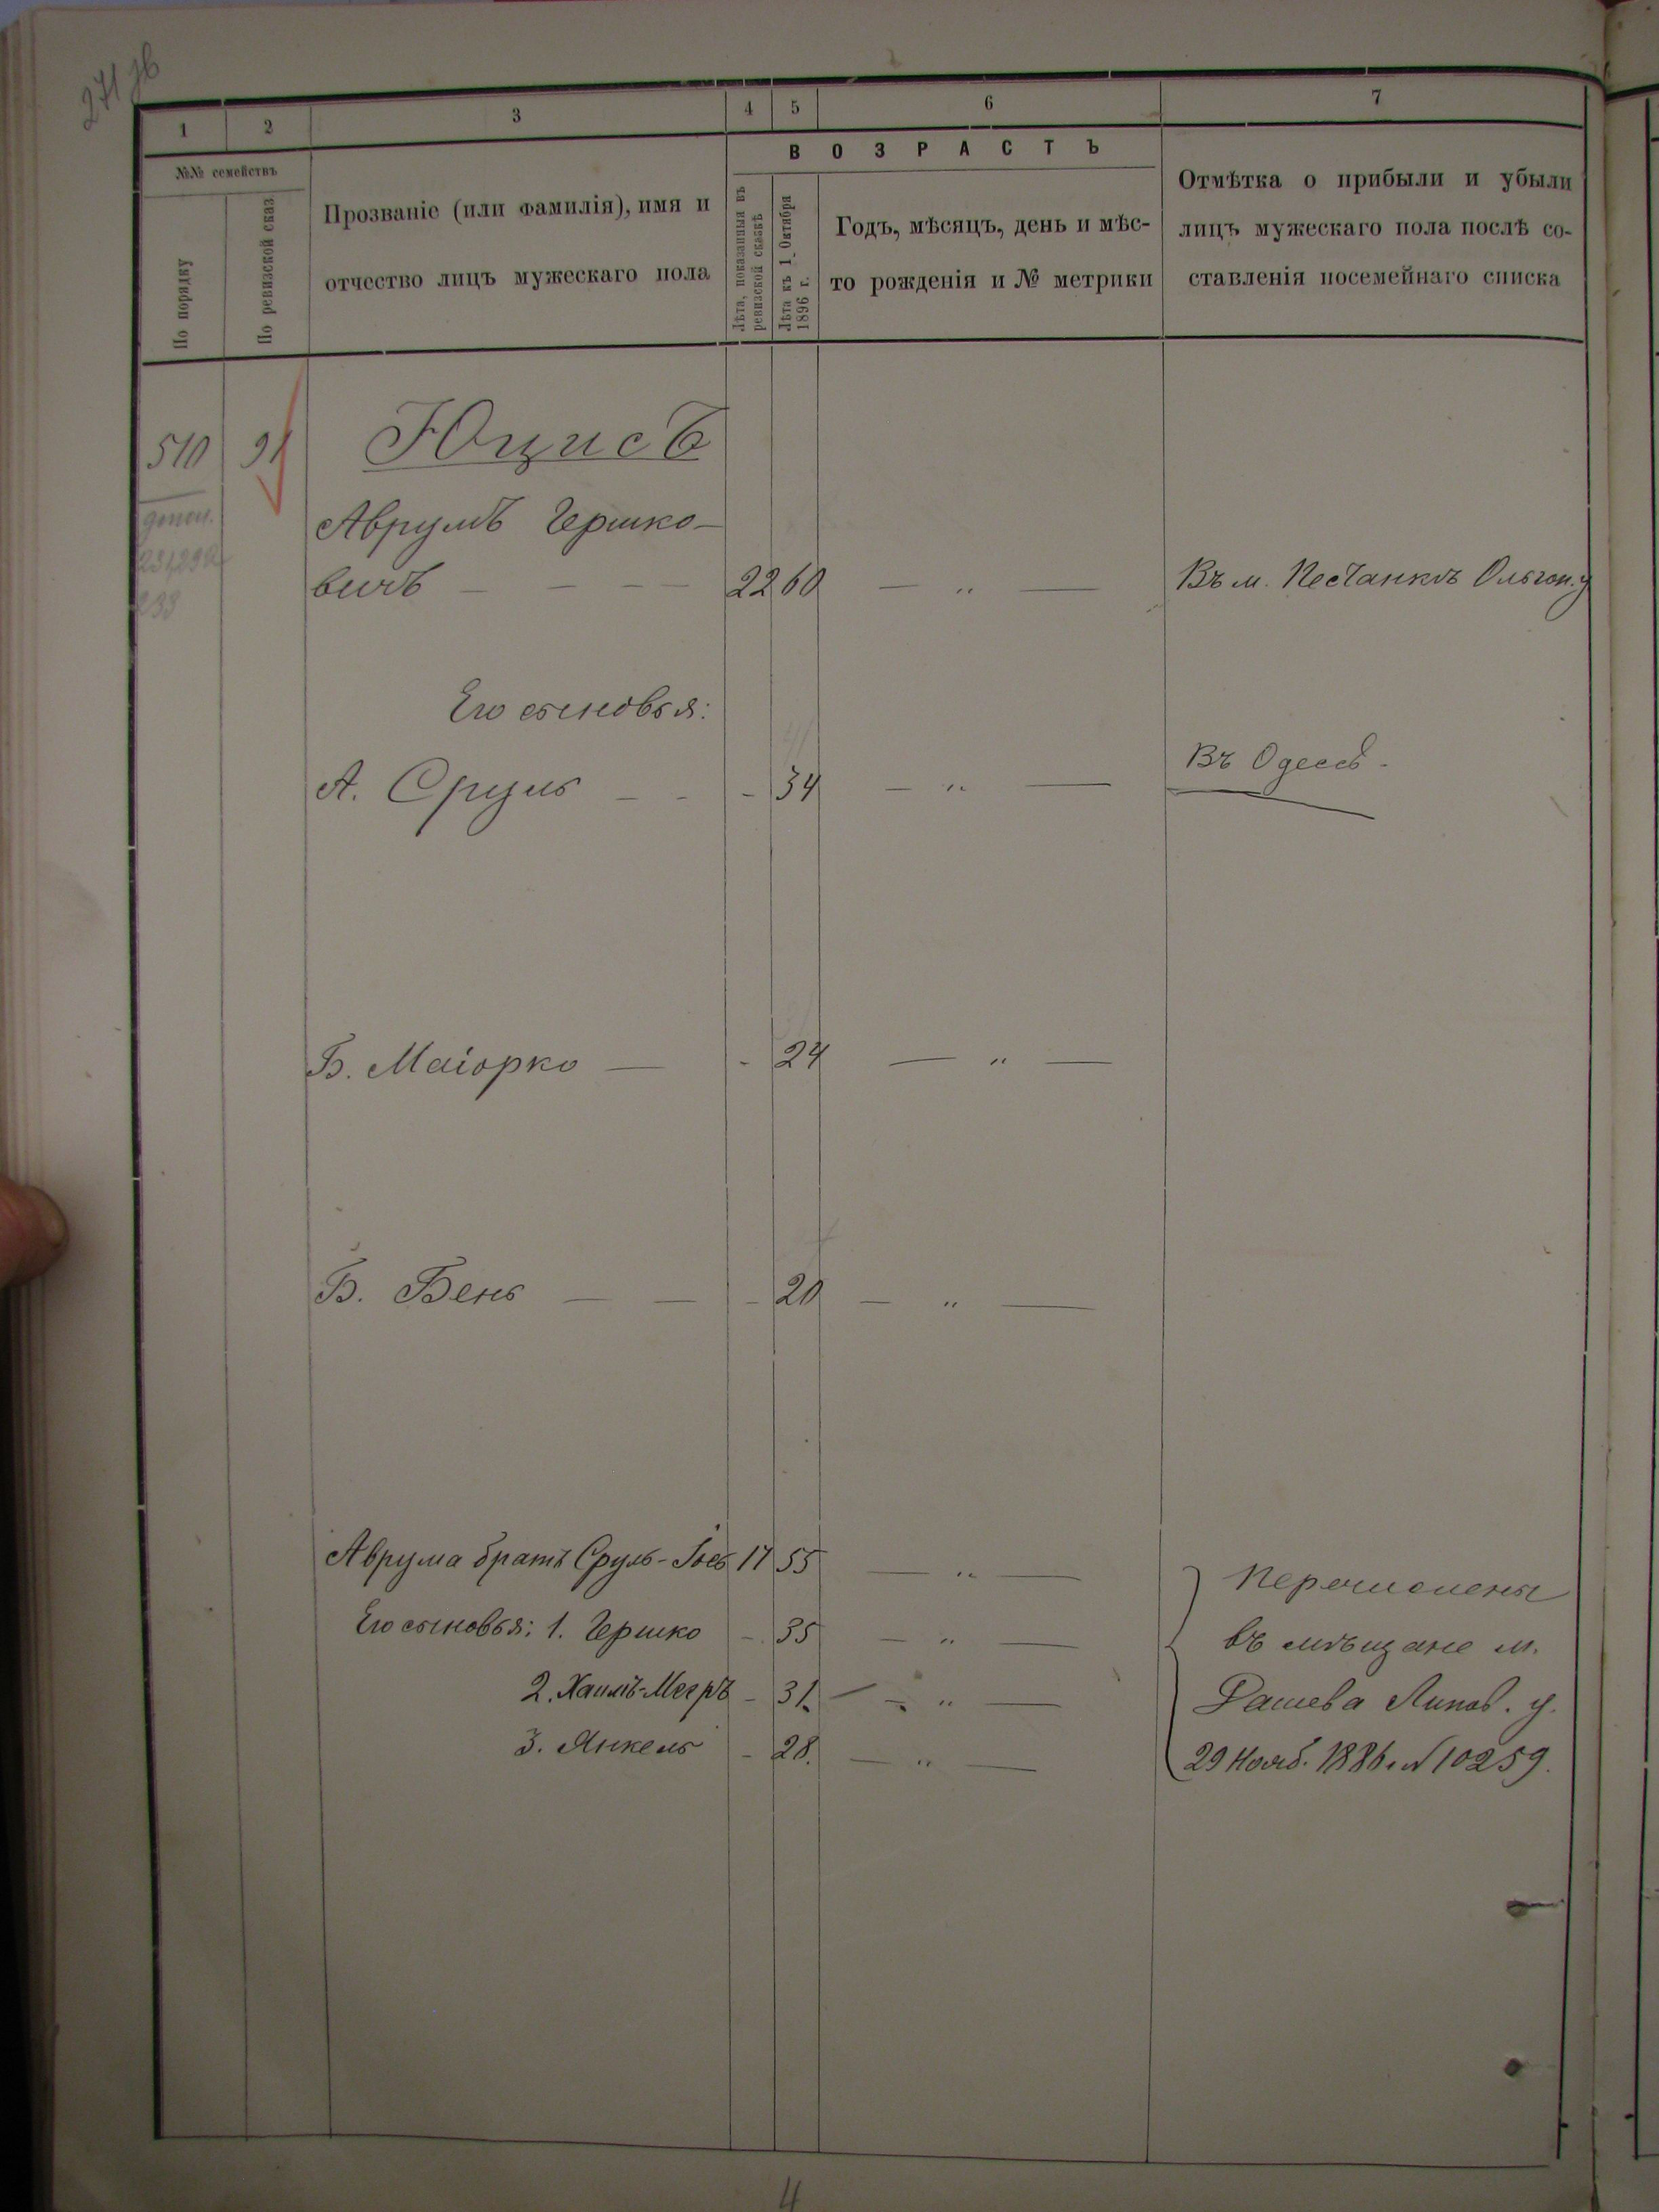 271 об
1 2 3 4 5 6 7
№№ семействъ
По порядку
По ревизской сказ.
Прозваніе (или фамилія), имя и
отчество лицъ мужескаго пола
ВОЗРАСТЪ
Лѣта, показанныя въ
ревизской сказкѣ
Лѣта къ 1 Октября
1896 г.
Годъ, мѣсяцъ, день и мѣс-
то рожденія и № метрики
Отмѣтка о прибыли и убыли
лицъ мужескаго пола послѣ со-
ставленія посемейнаго списка
510 91 Юцисъ
допол.
Аврумъ Гершко-
вичъ — — — 22 60 — „ — Въ м. Песчанкѣ Ольгоп. у
Его сыновья:
А. Сруль — — - 34 — „ — Въ Одессѣ.
Б. Маіорко — - 24 — „ —
В. Бень — — - 20 — „ —
Аврума братъ Сруль-Іось 17 55 — „ — Перечислены
Его сыновья: 1. Гершко - 35 — „ — въ мѣщане м.
2. Хаимъ-Мееръ - 31 — „ — Дашева Липов. у.
3. Янкель - 28. — „ — 29 Нояб. 1886 г. № 10259.
4